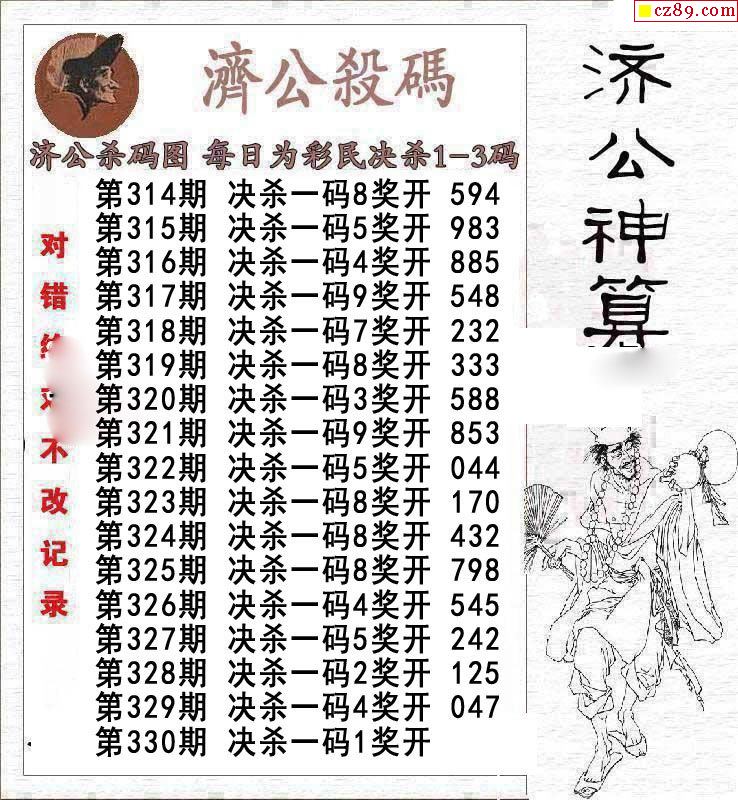 cz89.com
濟公殺碼
济公杀码图 每日为彩民决杀1-3码
第314期 决杀一码8奖开 594
第315期 决杀一码5奖开 983
第316期 决杀一码4奖开 885
第317期 决杀一码9奖开 548
第318期 决杀一码7奖开 232
第319期 决杀一码8奖开 333
第320期 决杀一码3奖开 588
第321期 决杀一码9奖开 853
第322期 决杀一码5奖开 044
第323期 决杀一码8奖开 170
第324期 决杀一码8奖开 432
第325期 决杀一码8奖开 798
第326期 决杀一码4奖开 545
第327期 决杀一码5奖开 242
第328期 决杀一码2奖开 125
第329期 决杀一码4奖开 047
第330期 决杀一码1奖开
对错绝对不改记录
济公神算